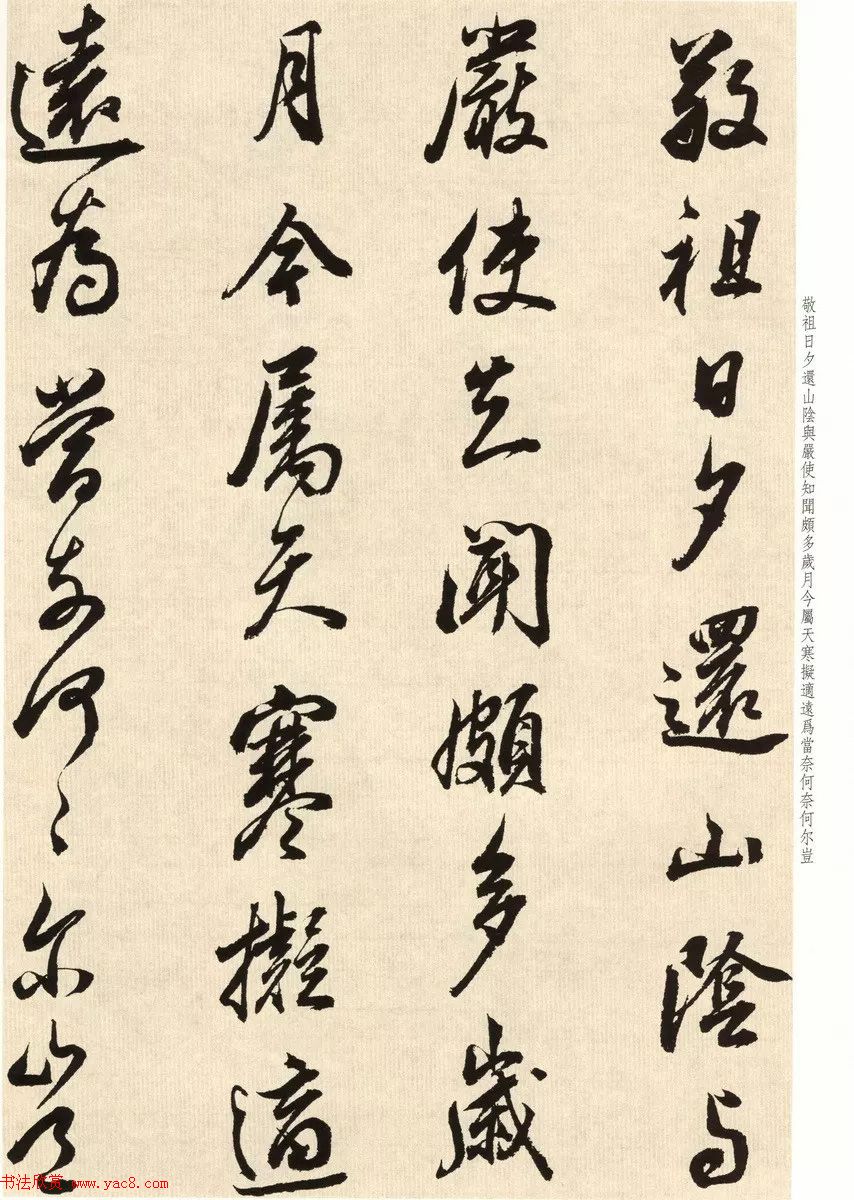 敬祖日夕還山陰与
嚴使知聞頗多歲
月今属天寒擬適
遠為當奈何〻尔豈
敬祖日夕還山陰與嚴使知聞頗多歲月今屬天寒擬適遠爲當奈何奈何尔豈
书法欣赏 www.yac8.com